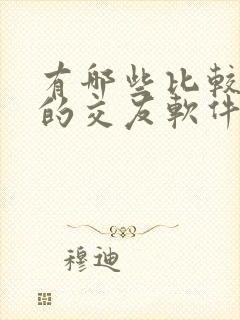 有哪些比較
的交友軟件
穆迪